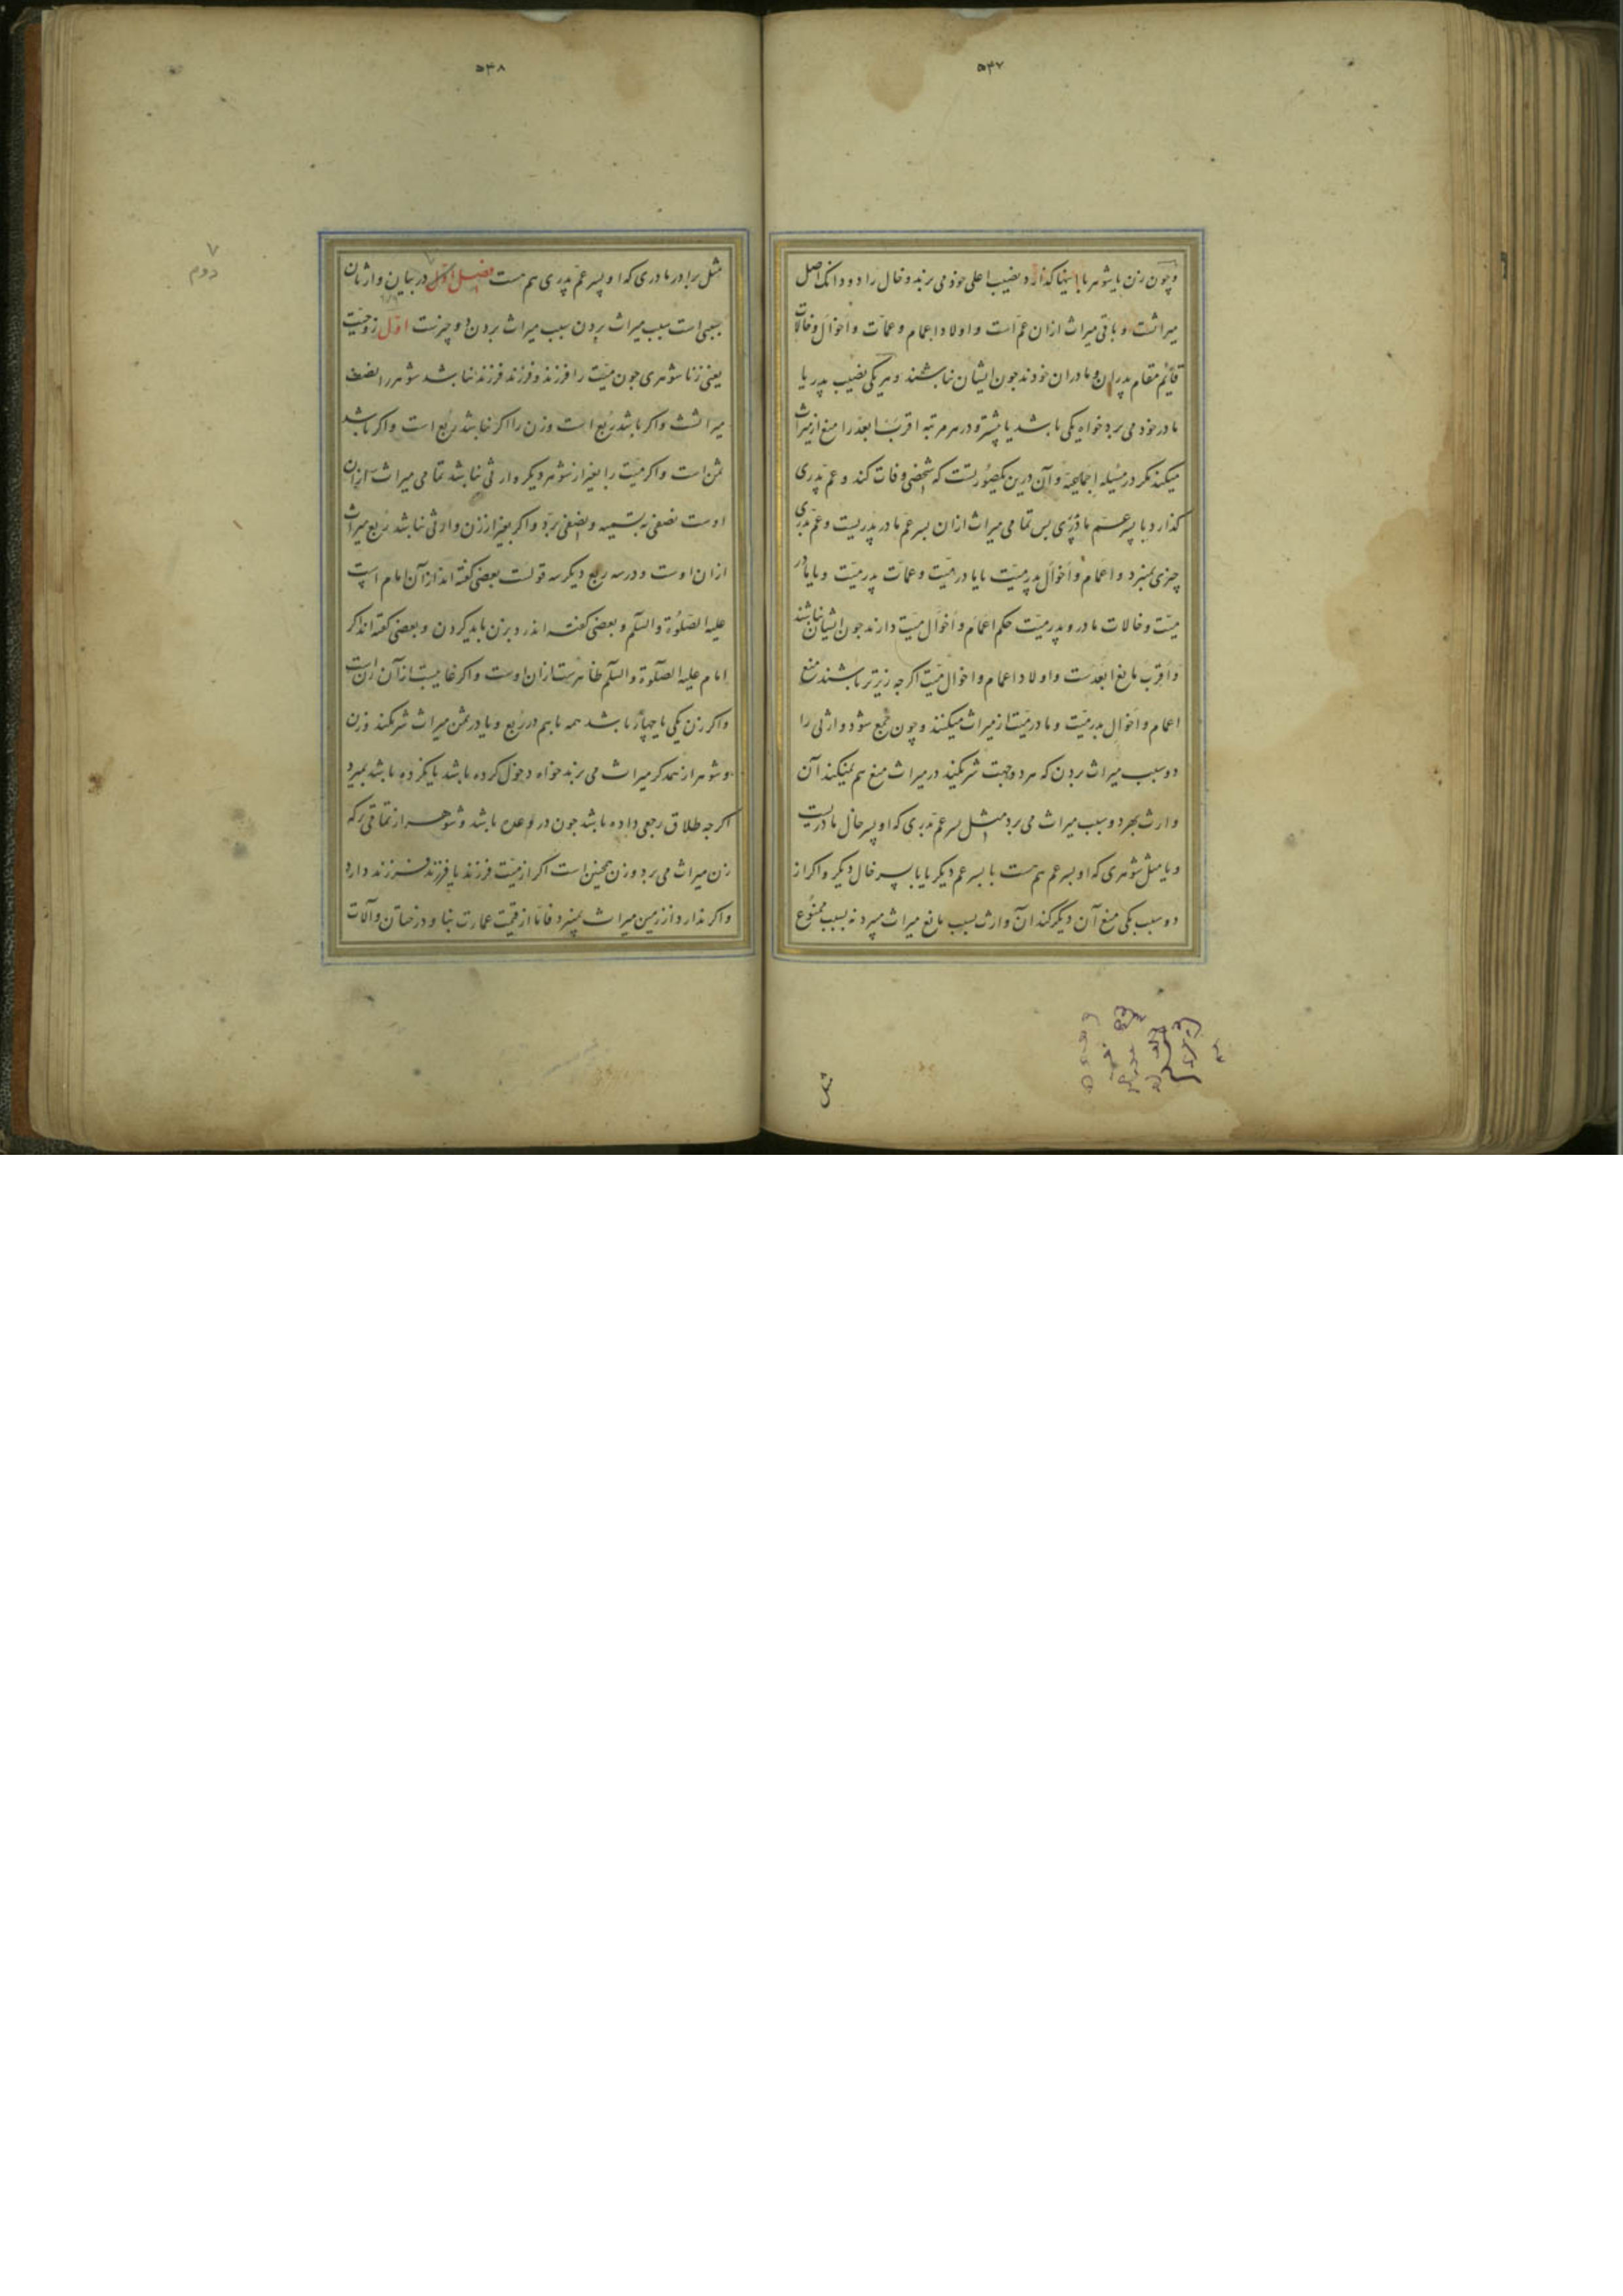 ۵۴۷
و چون زن یا شوهر با اینها گذارد نصیب اعلی خود می برند و خال را دو دانک اصل
میراثست و باقی میراث ازان عمّ است و اولاد اعمام و عمّات و اخوال و خالات
قایم مقام پدران و مادران خودند جون ایشان نباشند و هر یکی نصیب پدر یا
مادر خود می برد خواه یکی باشد یا پیشتر و در هر مرتبه اقرب ابعد را منع از میراث
میکند مکر در مسئله اجماعیّه و آن درین یکصورتست که شخصی وفات کند و عمّ پدری
کذارد با پسر عمّ مادر پدری بس تمامی میراث ازان بسر عمّ مادر پدریست و عمّ پدری
چیزی نمیبرد و اعمام و اخوال پدر میّت یا مادر میّت و عمّات پدر میّت و یا مادر
میّت و خالات مادر و پدر میّت حکم اعمام و اخوال میّت دارند جون ایشان نباشند
و اقرب مانع ابعدست و اولاد اعمام و اخوال میّت اکر جه زیرتر باشند منع
اعمام و اخوال پدر میّت و مادر میّت از میراث میکنند و چون جمع شود وارثی را
دو سبب میراث بردن که هر دو جهت شریکند در میراث منع هم نمیکند آن
وارث بهر دو سبب میراث می برد مثل بسر عمّ پدری که او پسر خال مادریست
و یا مثل شوهری که او بسر عم هم هست با بسر عم دیکر یا با پسر خال دیکر و اکر از
دو سبب یکی منع آن دیکر کند آن وارث بسبب مانع میراث میبرد نه بسبب ممنوع
مثل
۵۴۸
مثل برادر مادری که او پسر عمّ پدری هم هست فصل اوّل در بیان وارثان
سببی است سبب میراث بردن سبب میراث بردن دو چیزست اوّل زوجیّت
یعنی زناشوهری جون میّت را فرزند و فرزند فرزند نباشد شوهر را نصف
میراثست و اکر باشد ربع است و زن را اکر نباشد ربع است و اکر باشد
ثمن است و اکر میّت را بغیر از شوهر دیکر وارثی نباشد تمامی میراث ازان
اوست نصفی به تسمیه و نصفی بردّ و اکر بغیر از زن وارثی نباشد ربع میراث
ازان اوست و در سه ربع دیکر سه قولست بعضی کفته اند ازان امام است
علیه الصّلوة والسّلم و بعضی کفته اند رد بزن باید کردن و بعضی کفته اند اکر
امام علیه الصّلوة والسّلم ظاهرست ازان اوست و اکر غایبست ازآن زن است
و اکر زن یکی یا چهار باشد همه باهم در ربع و یا در ثمن میراث شریکند و زن
و شوهر از همدکر میراث می برند خواه دخول کرده باشد یا نکرده باشد بمیرد
اکر جه طلاق رجعی داده باشد جون در عده باشد و شوهر از تمامی ترکه
زن میراث می برد و زن همچنین است اکر از میّت فرزند یا فرزند فرزند دارد
و اکر ندارد از زمین میراث نمیبرد فامّا از قیمت عمارت بنا و درختان و آلات
۷
دوم